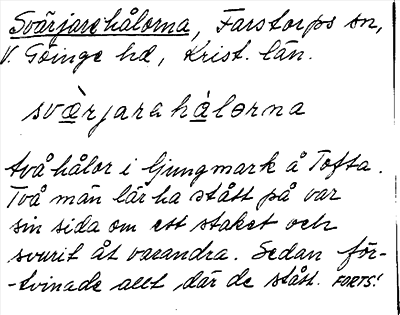 Svärjarehålorna, Farstorps sn,
V. Göinge hd, Krist. län.
svärjarahålorna
två hålor i ljungmark å Tofta.
Två män lär ha stått på var
sin sida om ett staket och
svurit åt varandra. Sedan för-
-tvinade allt där de stått. FORTS!